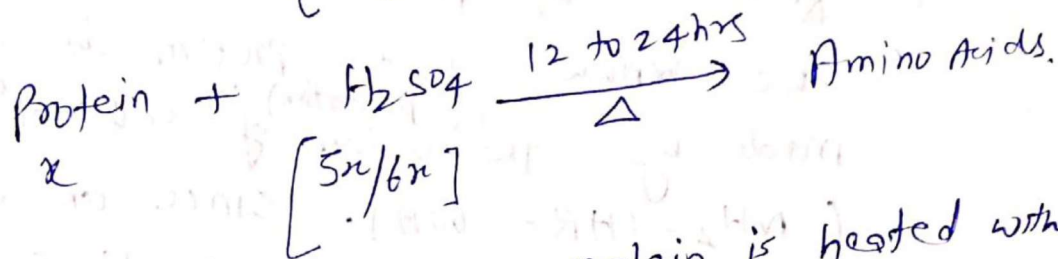 Protein + H2SO4 12 to 24hrs → Δ Amino Acids.
x [5x/6x]
is heated with